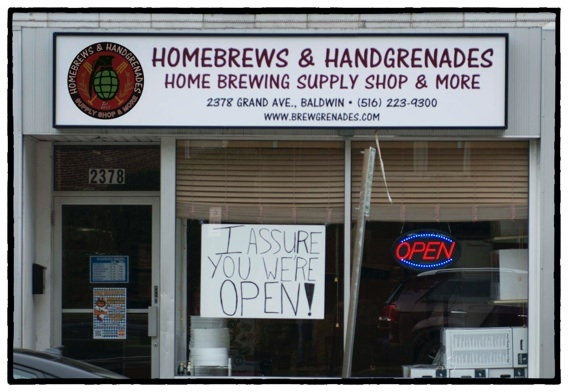 HOMEBREWS & HANDGRENADES
SUPPLY SHOP & MORE
HOMEBREWS & HANDGRENADES
HOME BREWING SUPPLY SHOP & MORE
2378 GRAND AVE., BALDWIN • (516) 223-9300
WWW.BREWGRENADES.COM
2378
I ASSURE
YOU WE'RE
OPEN!
OPEN